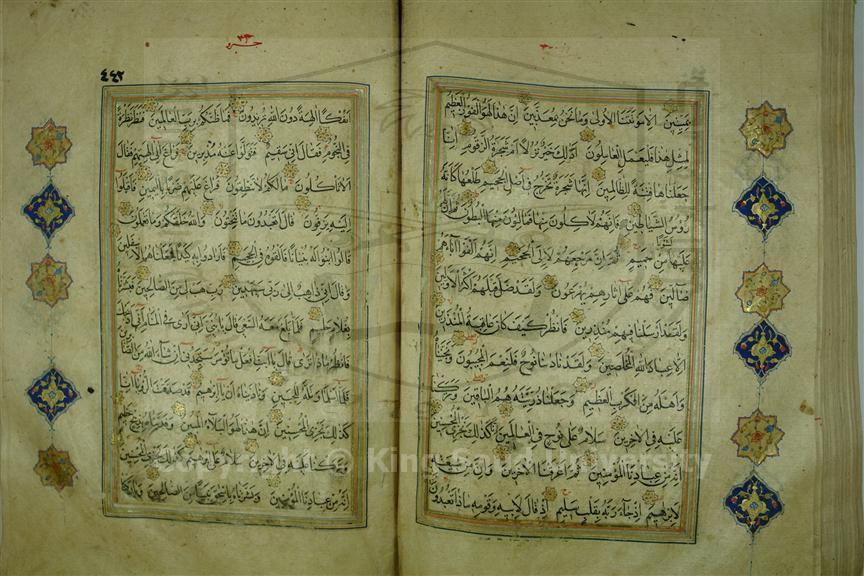 بميتين الا موتتنا الاولى وما نحن بمعذبين ان هذا لهو الفوز العظيم
لمثل هذا فليعمل العاملون اذلك خير نزلا ام شجرة الزقوم انا
جعلناها فتنة للظالمين انها شجرة تخرج في اصل الجحيم طلعها كانه
رؤس الشياطين فانهم لاكلون منها فمالؤن منها البطون ثم ان لهم
عليها لشوبا من حميم ثم ان مرجعهم لالى الجحيم انهم الفوا اباءهم
ضالين فهم على اثارهم يهرعون ولقد ضل قبلهم اكثر الاولين
ولقد ارسلنا فيهم منذرين فانظر كيف كان عاقبة المنذرين
الا عباد الله المخلصين ولقد نادينا نوح فلنعم المجيبون ونجيناه
واهله من الكرب العظيم وجعلنا ذريته هم الباقين وتركنا
عليه في الاخرين سلام على نوح في العالمين انا كذلك نجزي المحسنين
انه من عبادنا المؤمنين ثم اغرقنا الاخرين وان من شيعته
لابرهيم اذ جاء ربه بقلب سليم اذ قال لابيه وقومه ماذا تعبدون
جزو ٢٣
٤٤٢
ائفكا الهة دون الله تريدون فما ظنكم برب العالمين فنظر نظرة
في النجوم فقال اني سقيم فتولوا عنه مدبرين فراغ الى الهتهم فقال
الا تاكلون ما لكم لا تنطقون فراغ عليهم ضربا باليمين فاقبلوا
اليه يزفون قال اتعبدون ما تنحتون والله خلقكم وما تعملون
قالوا ابنوا له بنيانا فالقوه في الجحيم فارادوا به كيدا فجعلناهم الاسفلين
وقال اني ذاهب الى ربي سيهدين رب هب لي من الصالحين فبشرناه
بغلام حليم فلما بلغ معه السعي قال يا بني اني ارى في المنام اني اذبحك
فانظر ماذا ترى قال يا ابت افعل ما تؤمر ستجدني ان شاء الله من الصابرين
فلما اسلما وتله للجبين وناديناه ان يا ابرهيم قد صدقت الرؤيا انا
كذلك نجزي المحسنين ان هذا لهو البلاء المبين وفديناه بذبح عظيم
وتركنا عليه في الاخرين سلام على ابرهيم كذلك نجزي المحسنين
انه من عبادنا المؤمنين وبشرناه باسحق نبيا من الصالحين وباركنا
Copyright © King Saud University